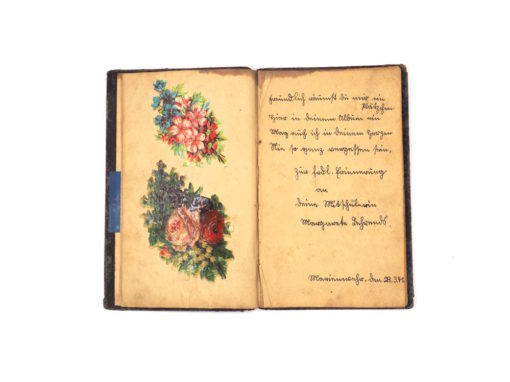 Freundlich räumst du mir ein
Plätzchen
Hier in deinem Album ein
Mag auch ich in deinem Herzen
Nie so ganz vergessen sein.
Zur frdl. Erinnerung
an
deine Mitschülerin
Margarete Behrends.
Marienwehr, den 23.3.41